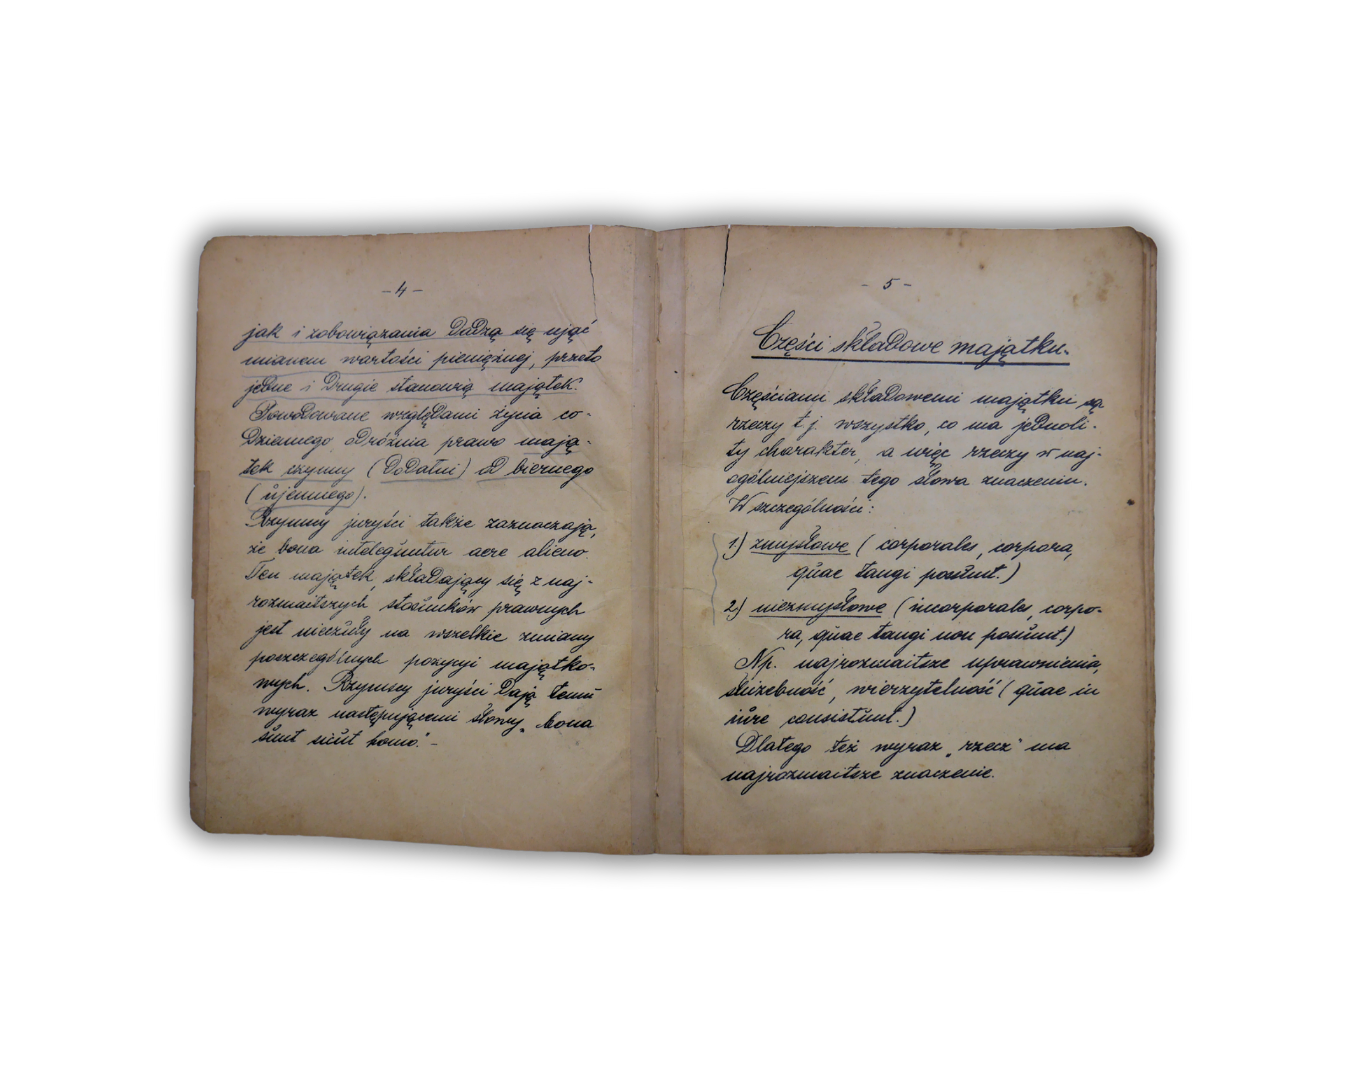 - 4 -
jak i zobowiązania dadzą się ująć
mianem wartości pieniężnej, przeto
jedne i drugie stanowią majątek.
Powodowane względami życia co-
dziennego odróżnia prawo mają-
tek czynny (dodatni) od biernego
(ujemnego).
Rzymscy juryści także zaznaczają,
że bona inteleguntur aere alieno.
Ten majątek, składający się z naj-
rozmaitszych stosunków prawnych
jest nieczuły na wszelkie zmiany
poszczególnych pozycyi majątko-
wych. Rzymscy juryści dają temu
wyraz następującemi słowy „bona
sunt sicut homo." -
- 5 -
Części składowe majątku.
Częściami składowemi majątku są
rzeczy t.j. wszystko, co ma jednoli-
ty charakter, a więc rzeczy w naj-
ogólniejszem tego słowa znaczeniu.
W szczególności:
1.) zmysłowe (corporales, corpora,
quae tangi possunt.)
2.) niezmysłowe (incorporales, corpo-
ra, quae tangi non possunt.)
Np. najrozmaitsze uprawnienia,
służebność, wierzytelność (quae in
iure consistunt.)
Dlatego też wyraz „rzecz" ma
najrozmaitsze znaczenie.